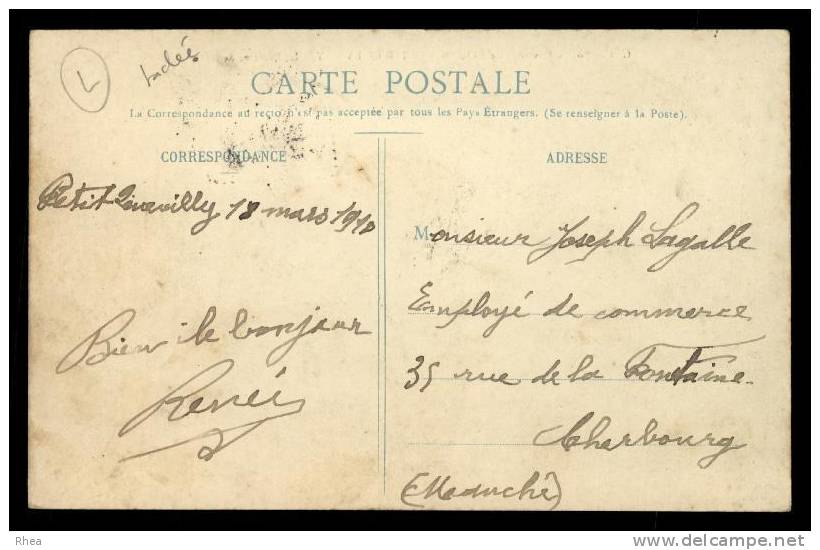 L
CARTE POSTALE
La Correspondance au recto n'est pas acceptée par tous les Pays Étrangers. (Se renseigner à la Poste).
CORRESPONDANCE
ADRESSE
Petit Quevilly 18 mars 1910
Monsieur Joseph Lagalle
Employé de commerce
35 rue de la Fontaine
Cherbourg
(Manche)
Bien le bonjour
René
Rhea
www.delcampe.net